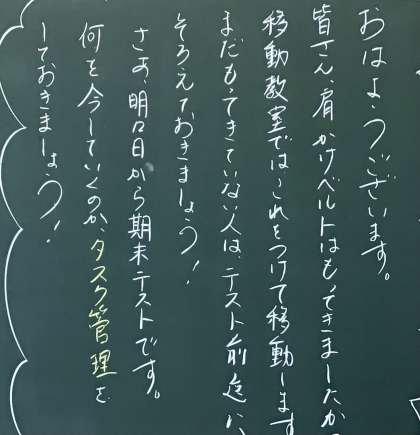 おはようございます。
皆さん、肩かけベルトはもってきましたか
移動教室ではこれをつけて移動します
まだもってきていない人は、テスト前迄に、
そろえておきましょう!
さあ、明日から期末テストです。
何を今していくのか、タスク管理を
しておきましょう!